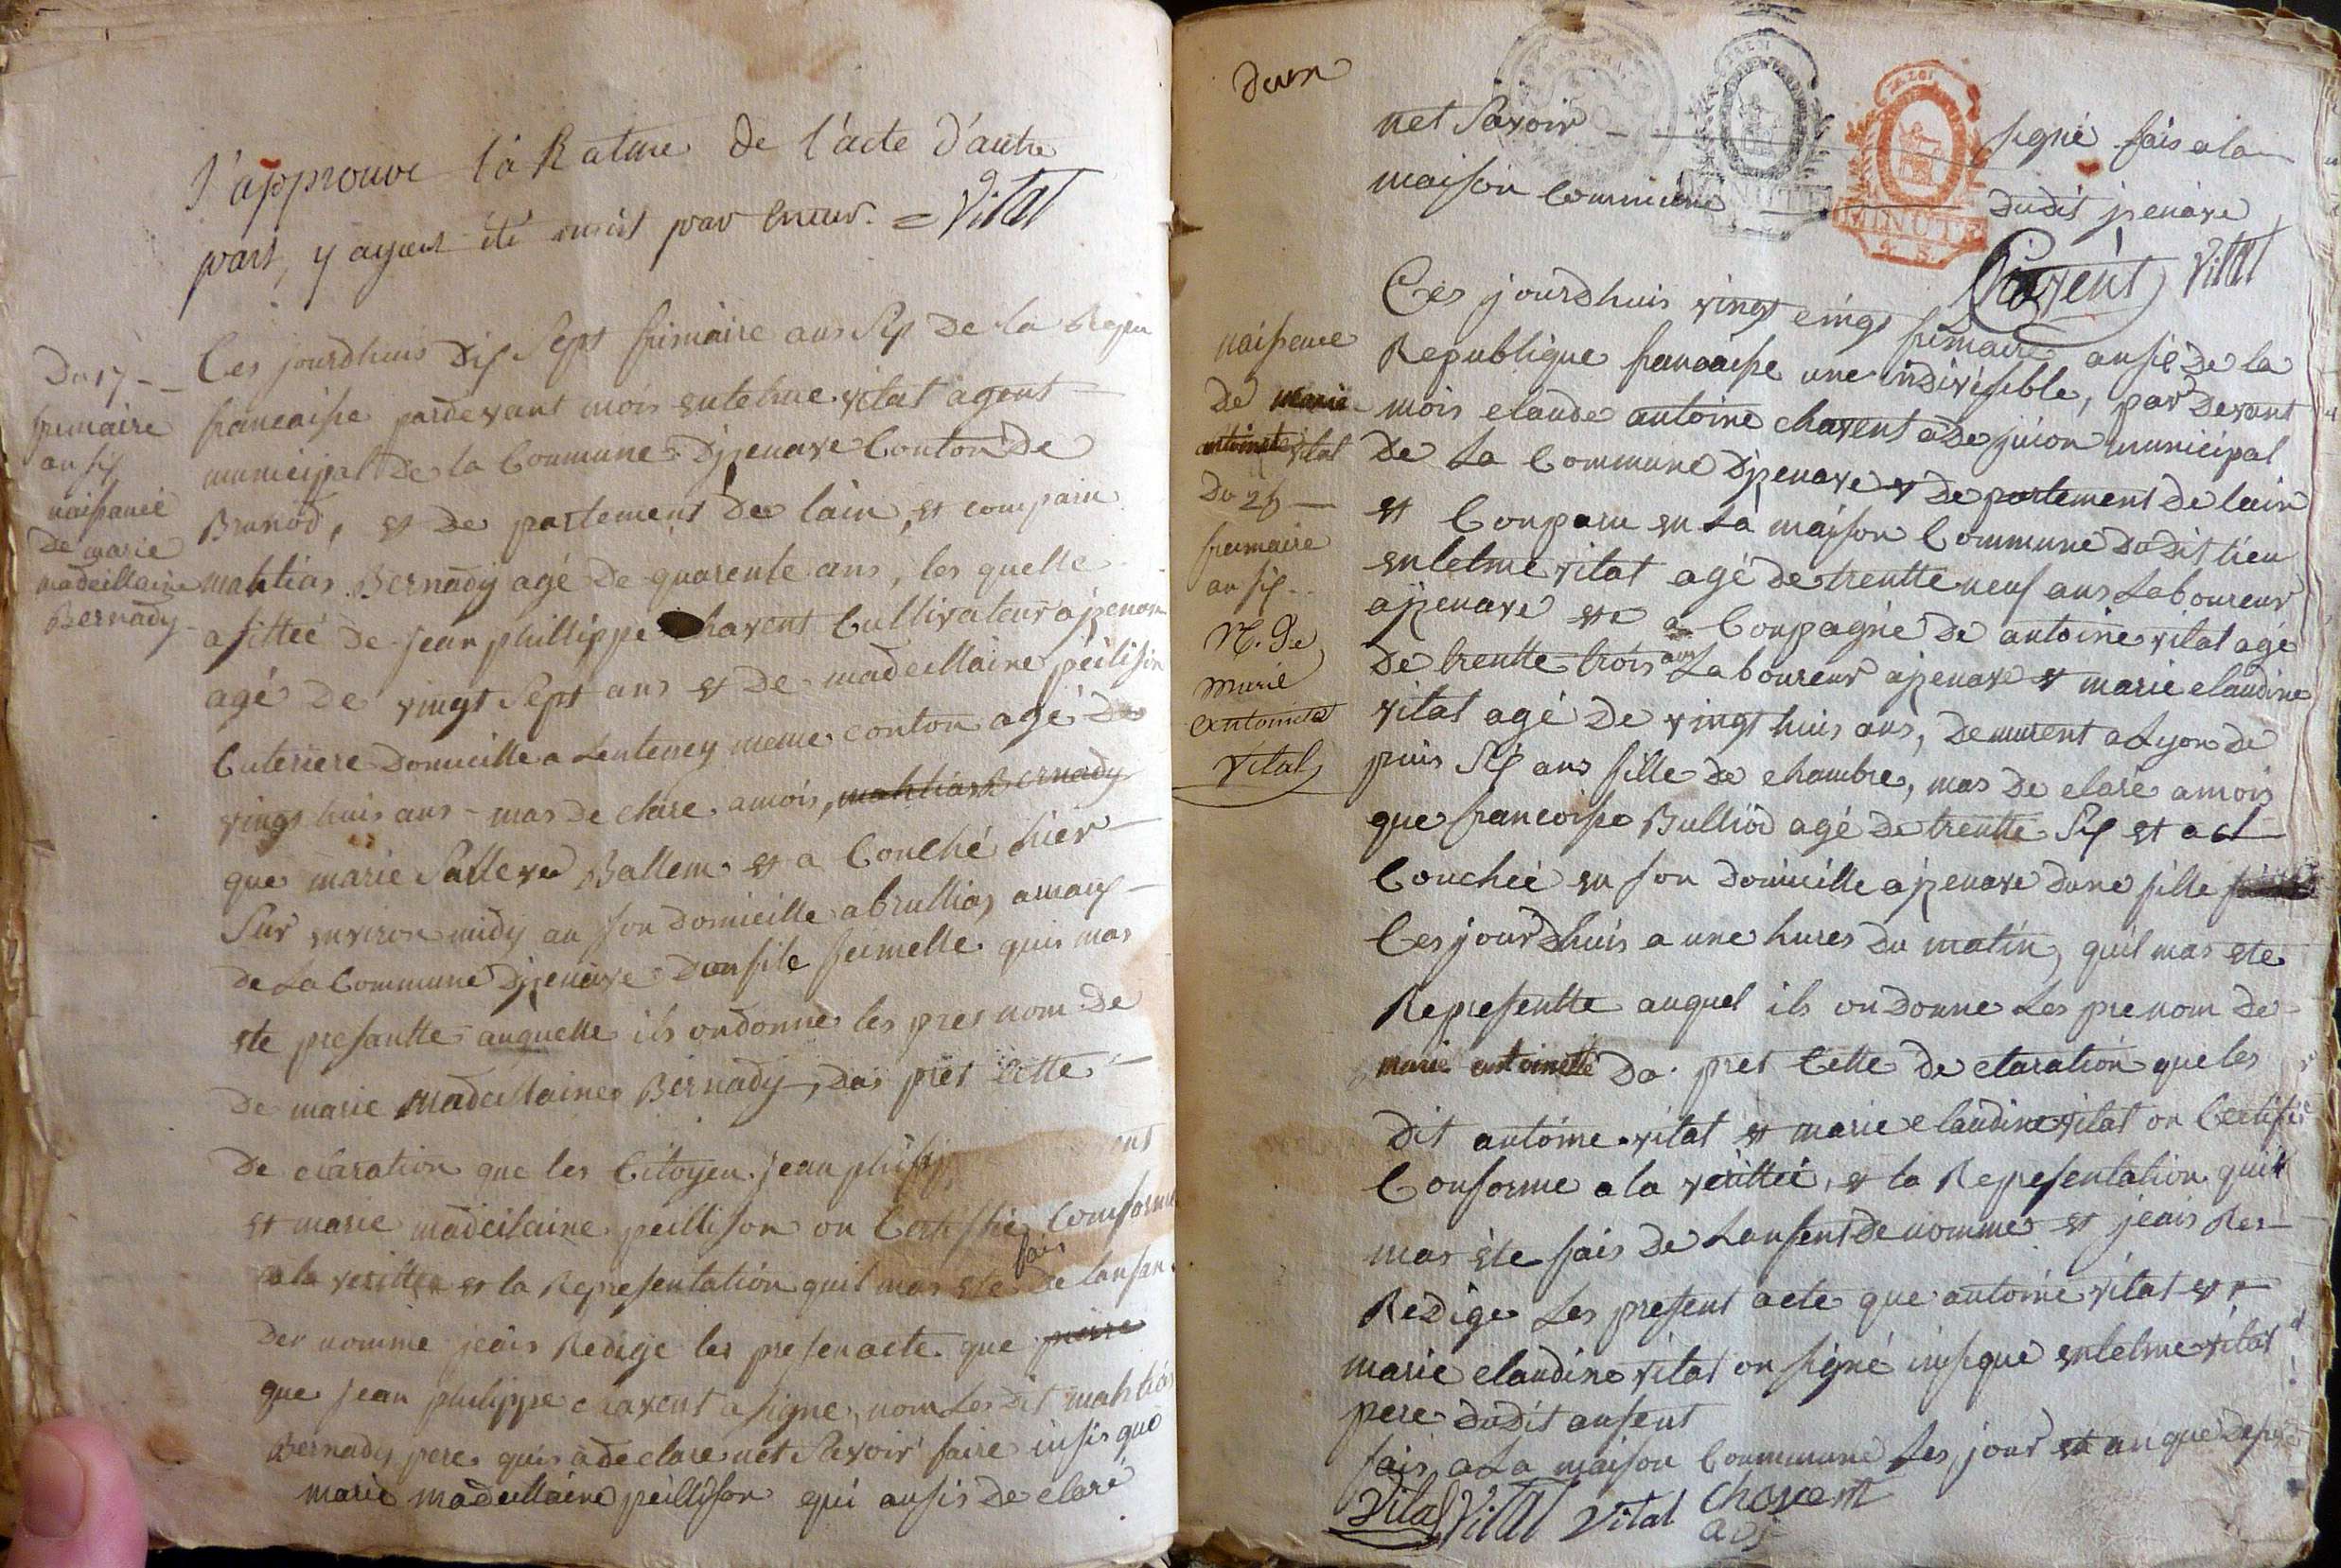 J'approuve la Rature de l'acte d'autre
part, y ayant été mist par erreur. = Vitat
Du 17 -
frimaire
an six
naissance
De marie
madeillaine
Bernady
Ces jourdhuis Dix Sept frimaire ans Six De la
francaisse pardevant mois entelme vitat agent
municipal De la Commune Djzenave Conton De
Brunod, et De partement De lain, et comparu
mahtias Bernady agé De quarente ans, les quelle
asistteé De jean phillippe Chavent Cultivateur ajzenave
agé De vingt Sept ans et De madeillaine peilison
Cuteriere Domicille a Lenteney meme conton agé De
vingt huis ans - mas De clare amois, mahtias Bernady
que marie Salleve Ballem et a Couché hier
Sur environ midy an son Domicille abrullias amaux
De La Commune Djzenave Dun file feimelle quis mas
ete presantte auquelle ils on donné les pres nom De
De marie Madeillaine Bernady, Das pres Cette
De claration que les Citoyen jean
et marie madeilaine peillison on Certiffié Comforme
a la veritte et la Representation quil mas ete fais De lansan
Der nomme jeais Redige les presen acte que pierre
que jean philippe chavent a signe, nom Les Dit mahtias
Bernady pere quis a De clare net Savoir faire insis que
marie madeillaine peillison qui ausis De claré
net Savoir signé fais a la
maison Commune Dudit jzenave
MINUTE
MINUTE
Chavent Vitat
naissence
De marie
antoinete vitat
Du 25 -
frimaire
an six
N. De
Marie
Antoinete
Vital
Ces jourdhuis vingt cinqt frimaire ansix De la
Republique francaisse une indivisible, par Devant
mois claude antoine chavent aDejuion municipal
De La Commune Djzenave et De partement De lain
et Conparu en La maison Commune DuDit lieu
entelme vitat agé De trentte neuf ans Laboureur
ajzenave ete a Conpagné De antoine vitat agé
De trentte trois ans Laboureur ajzenave et marie claudine
vitat agé De vingt huis ans, Demmurent a Lyon De
puis Six ans fille De chambre, mas De claré amois
que francoisse Bulliod agé De trentte Six et a cl
Couchée en son Domicille ajzenave Dune fille
Ces jour Dhuis a une hures Du matin, quil mas ete
Representte auquel ils on Donne Les prenom De
marie antoinette Da pres Cette De claration que les
Dit antoine vitat et marie claudine vitat on Certifié
Conforme a la verittée, et la Representation quil
mas ete fais De Lansent De nomme et jeais Res
Redige Les present acte que antoine vitat et
marie claudine vitat on signé insi que entelme vitat
pere Dudit ansent
fais a La maison Commune Les jour et an que Desus
Vital Vitat Vital Chavent
adj